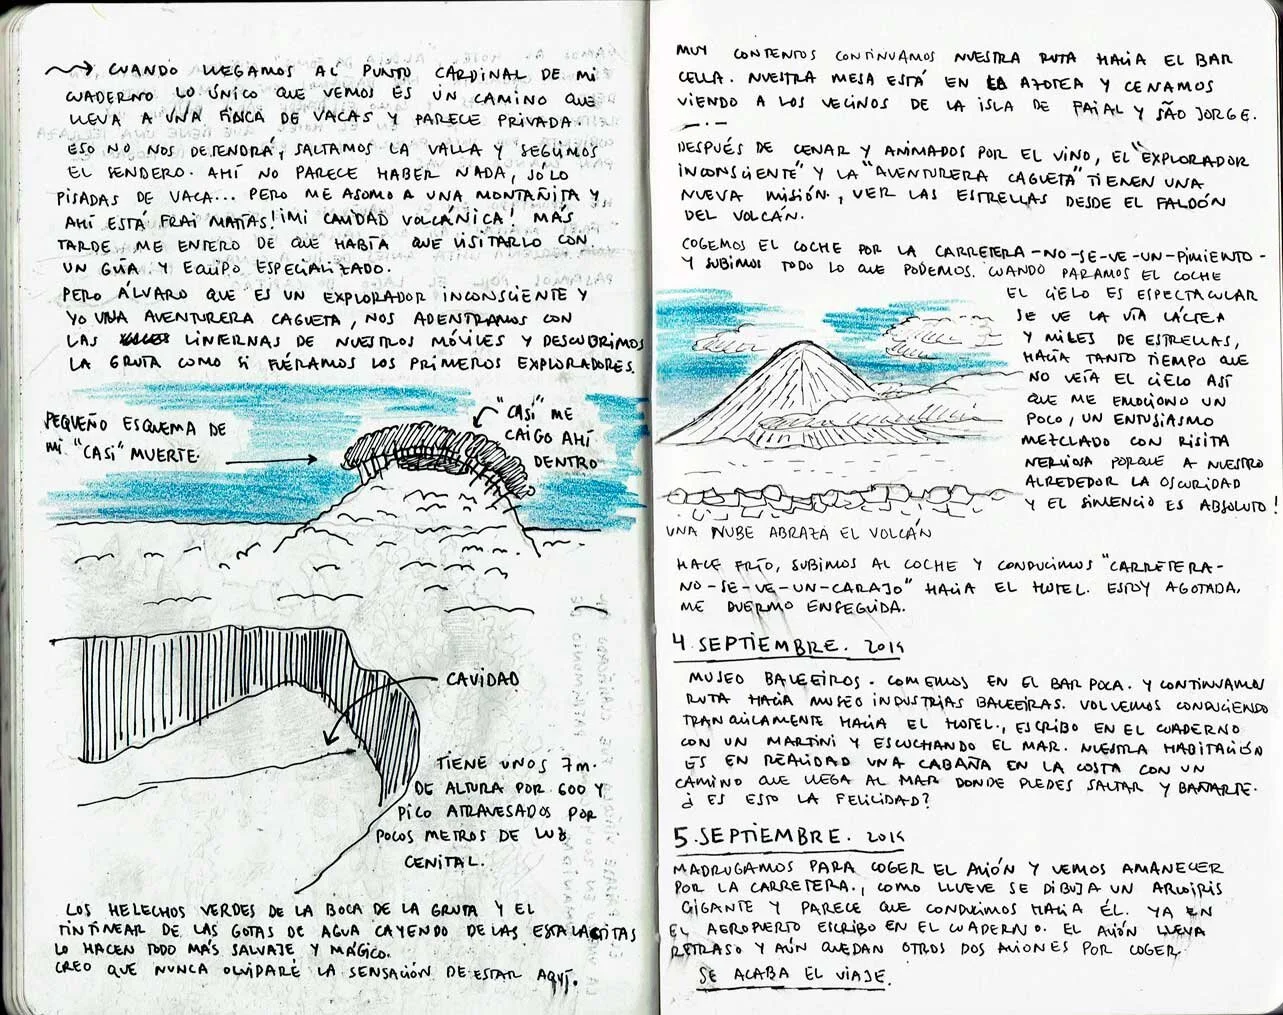 CUANDO LLEGAMOS AL PUNTO CARDINAL DE MI
CUADERNO LO ÚNICO QUE VEMOS ES UN CAMINO QUE
LLEVA A UNA FINCA DE VACAS Y PARECE PRIVADA.
ESO NO NOS DETENDRÁ, SALTAMOS LA VALLA Y SEGUIMOS
EL SENDERO. AHÍ NO PARECE HABER NADA, SÓLO
PISADAS DE VACA... PERO ME ASOMO A UNA MONTAÑITA Y
AHÍ ESTÁ FRAI MATÍAS! ¡MI CAVIDAD VOLCÁNICA! MÁS
TARDE ME ENTERO DE QUE HABÍA QUE VISITARLO CON
UN GUÍA Y EQUIPO ESPECIALIZADO.
PERO ÁLVARO QUE ES UN EXPLORADOR INCONSCIENTE Y
YO UNA AVENTURERA CAGUETA, NOS ADENTRAMOS CON
LAS LINTERNAS DE NUESTROS MÓVILES Y DESCUBRIMOS
LA GRUTA COMO SI FUÉRAMOS LOS PRIMEROS EXPLORADORES.
PEQUEÑO ESQUEMA DE
MI "CASI" MUERTE.
"CASI" ME
CAIGO AHÍ
DENTRO
CAVIDAD
TIENE UNOS 7 M.
DE ALTURA POR 600 Y
PICO ATRAVESADOS POR
POCOS METROS DE LUZ
CENITAL.
LOS HELECHOS VERDES DE LA BOCA DE LA GRUTA Y EL
TINTINEAR DE LAS GOTAS DE AGUA CAYENDO DE LAS ESTALACTITAS
LO HACEN TODO MÁS SALVAJE Y MÁGICO.
CREO QUE NUNCA OLVIDARÉ LA SENSACIÓN DE ESTAR AQUÍ.
MUY CONTENTOS CONTINUAMOS NUESTRA RUTA HACIA EL BAR
CELLA. NUESTRA MESA ESTÁ EN LA AZOTEA Y CENAMOS
VIENDO A LOS VECINOS DE LA ISLA DE FAIAL Y SÃO JORGE.
DESPUÉS DE CENAR Y ANIMADOS POR EL VINO, EL "EXPLORADOR
INCONSCIENTE" Y LA "AVENTURERA CAGUETA" TIENEN UNA
NUEVA MISIÓN, VER LAS ESTRELLAS DESDE EL FALDÓN
DEL VOLCÁN.
COGEMOS EL COCHE POR LA CARRETERA-NO-SE-VE-UN-PIMIENTO-
Y SUBIMOS TODO LO QUE PODEMOS. CUANDO PARAMOS EL COCHE
EL CIELO ES ESPECTACULAR
SE VE LA VÍA LÁCTEA
Y MILES DE ESTRELLAS,
HACÍA TANTO TIEMPO QUE
NO VEÍA EL CIELO ASÍ
QUE ME EMOCIONO UN
POCO, UN ENTUSIASMO
MEZCLADO CON RISITA
NERVIOSA PORQUE A NUESTRO
ALREDEDOR LA OSCURIDAD
Y EL SILENCIO ES ABSOLUTO!
UNA NUBE ABRAZA EL VOLCÁN
HACE FRÍO, SUBIMOS AL COCHE Y CONDUCIMOS "CARRETERA-
NO-SE-VE-UN-CARAJO" HACIA EL HOTEL. ESTOY AGOTADA,
ME DUERMO ENSEGUIDA.
4. SEPTIEMBRE. 2019
MUSEO BALEEIROS. COMEMOS EN EL BAR POCA. Y CONTINUAMOS
RUTA HACIA MUSEO INDUSTRIAS BALEEIRAS. VOLVEMOS CONDUCIENDO
TRANQUILAMENTE HACIA EL HOTEL, ESCRIBO EN EL CUADERNO
CON UN MARTINI Y ESCUCHANDO EL MAR. NUESTRA HABITACIÓN
ES EN REALIDAD UNA CABAÑA EN LA COSTA CON UN
CAMINO QUE LLEGA AL MAR DONDE PUEDES SALTAR Y BAÑARTE.
¿ES ESTO LA FELICIDAD?
5. SEPTIEMBRE. 2019
MADRUGAMOS PARA COGER EL AVIÓN Y VEMOS AMANECER
POR LA CARRETERA, COMO LLUEVE SE DIBUJA UN ARCOIRIS
GIGANTE Y PARECE QUE CONDUCIMOS HACIA ÉL. YA EN
EL AEROPUERTO ESCRIBO EN EL CUADERNO. EL AVIÓN LLEVA
RETRASO Y AÚN QUEDAN OTROS DOS AVIONES POR COGER.
SE ACABA EL VIAJE.